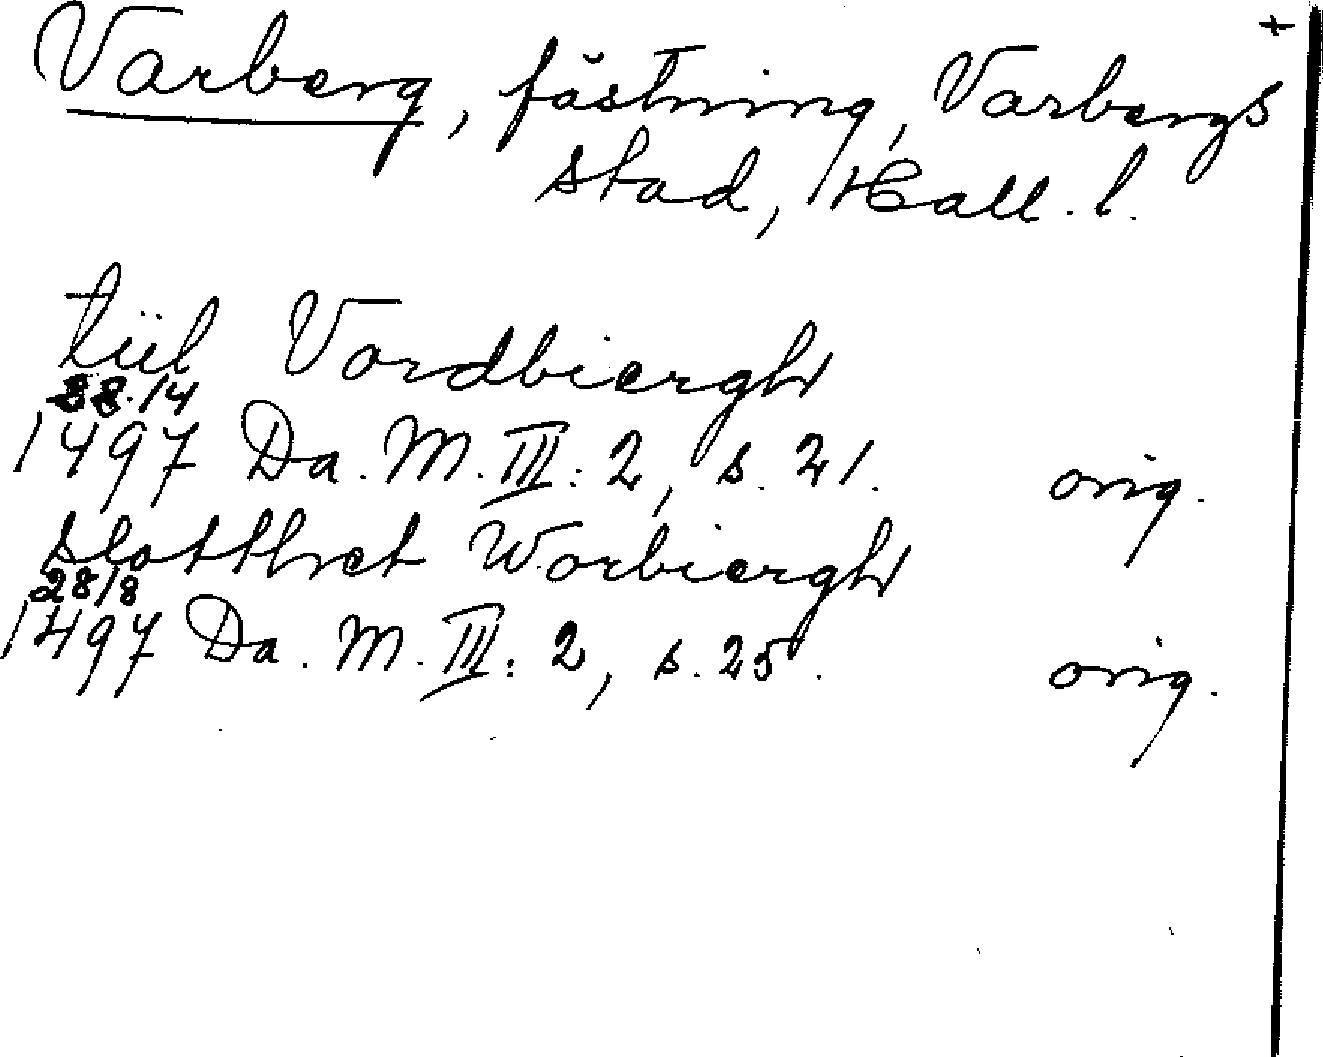 +
Varberg, fästning, Varbergs
stad, Hall. l.
tiil Vordbiergh
28/4
1497 Da. M. III: 2, s. 21. orig.
slotthet Worbiergh
28/8
1497 Da. M. III: 2, s. 25. orig.